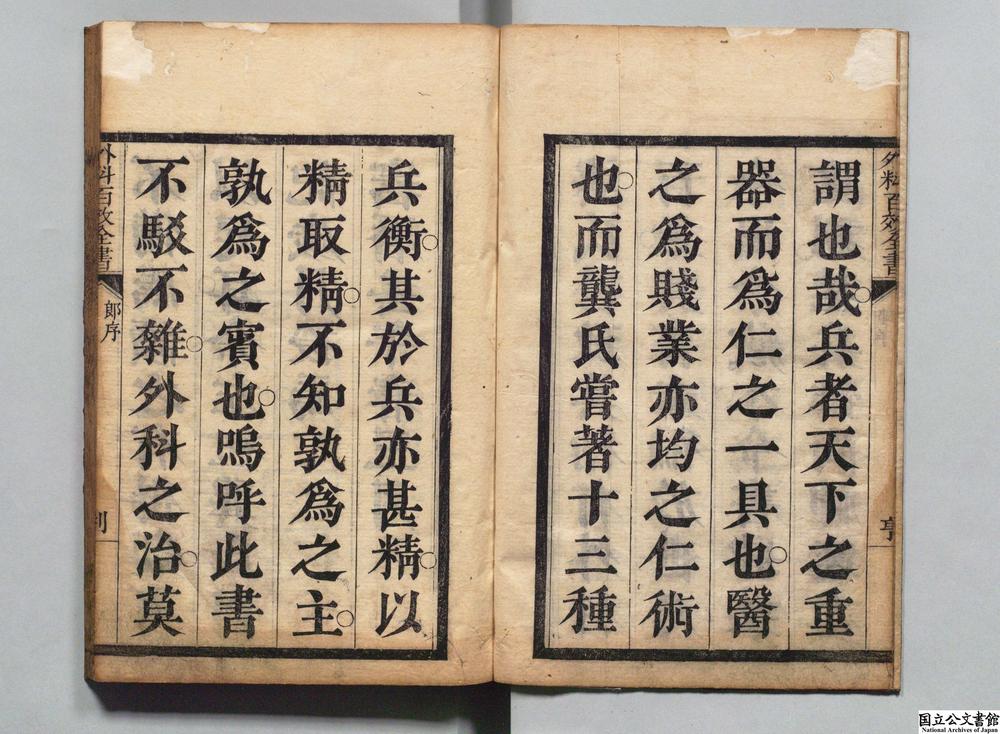 外科百效全書
亨
謂也哉兵者天下之重
器而為仁之一具也醫
之爲賤業亦均之仁術
也而龔氏嘗著十三種
兵衡其於兵亦甚精以
精取精不知孰爲之主
孰爲之賓也嗚呼此書
不駁不雜外科之治莫
外科百效全書
郎序
國立公文書館
National Archives of Japan